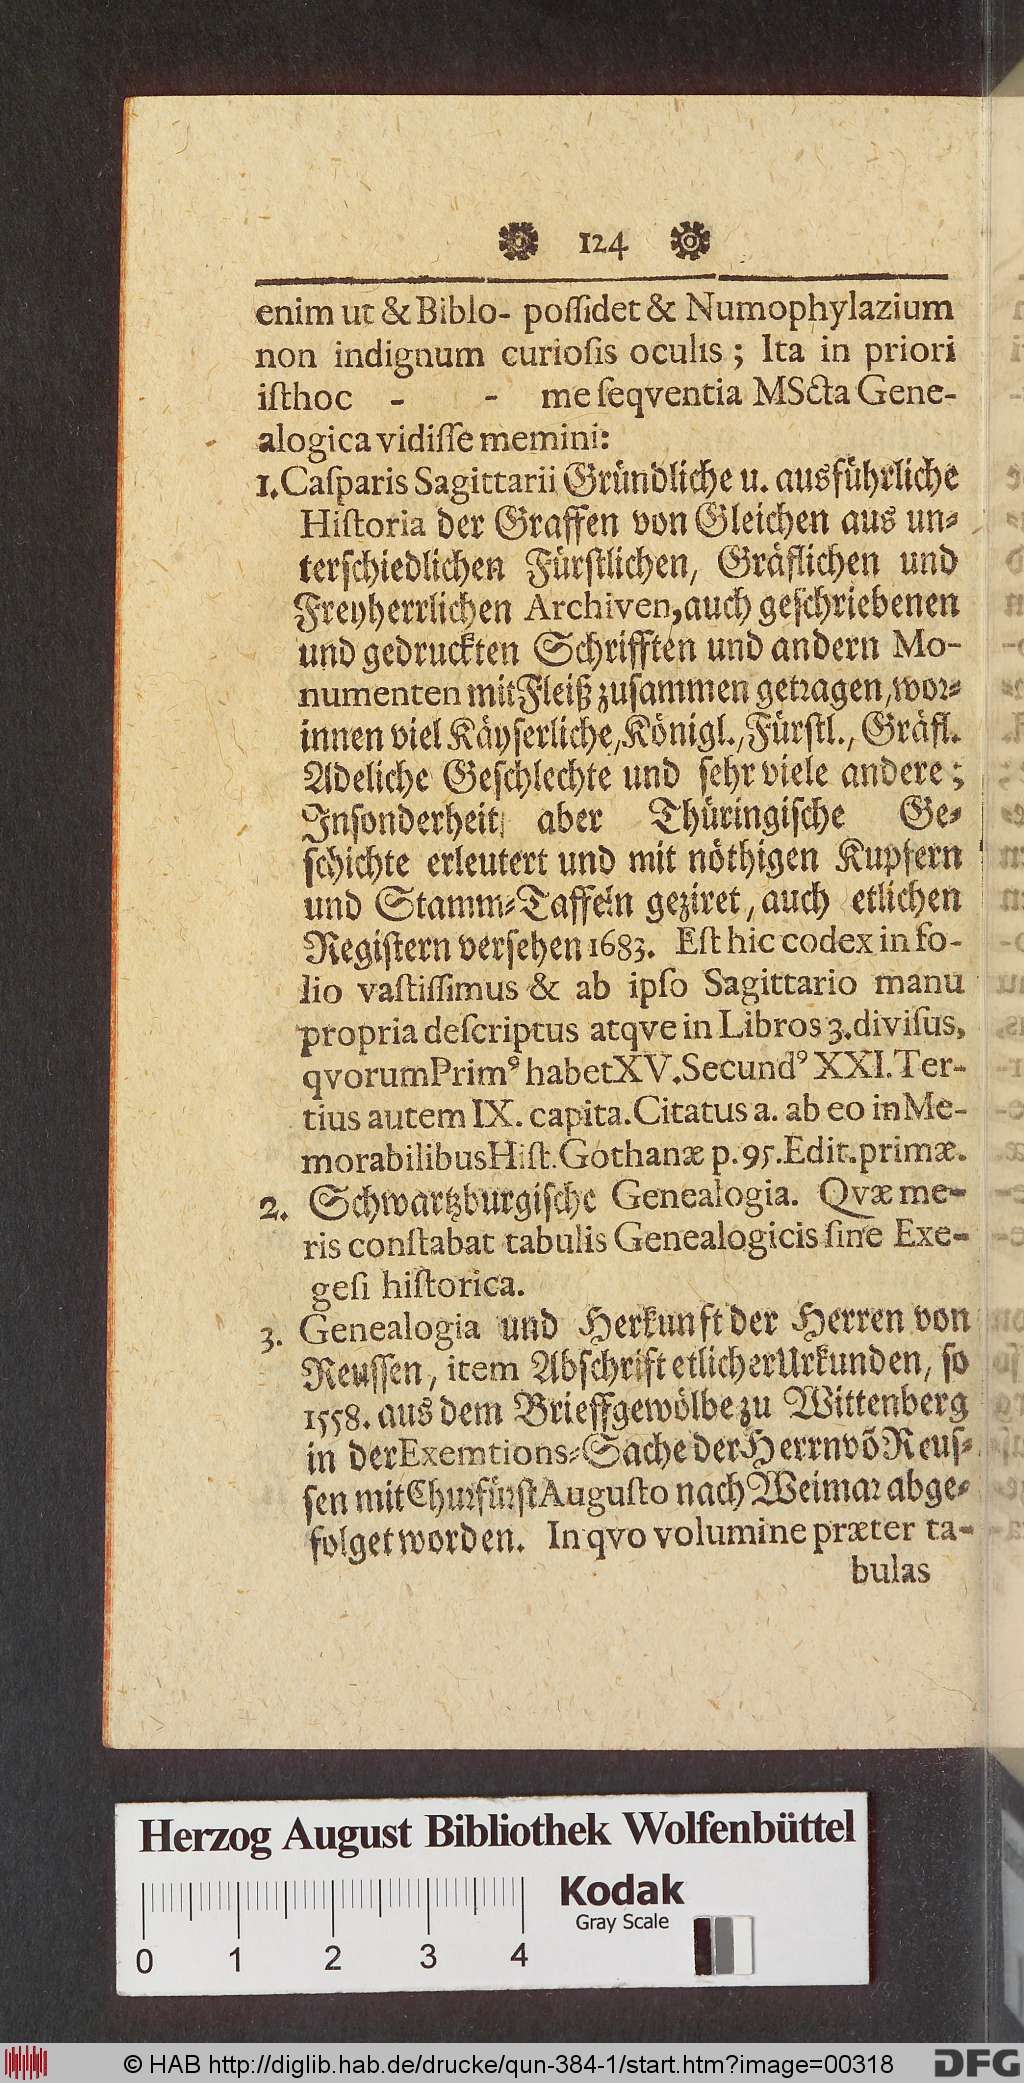 124
enim ut & Biblo- poſſidet & Numophylazium
non indignum curioſis oculis; Ita in priori
iſthoc - - me ſeqventia MScta Gene-
alogica vidiſſe memini:
1. Caſparis Sagittarii Gründliche u. ausführliche
Hiſtoria der Graffen von Gleichen aus un-
terſchiedlichen Fürſtlichen, Gräflichen und
Freyherrlichen Archiven, auch geſchriebenen
und gedruckten Schrifften und andern Mo-
numenten mit Fleiß zuſammen getragen, wor-
innen viel Käyſerliche, Königl., Fürſtl., Gräfl.
Adeliche Geſchlechte und ſehr viele andere;
Inſonderheit aber Thüringiſche Ge-
ſchichte erleutert und mit nöthigen Kupfern
und Stamm-Taffeln geziret, auch etlichen
Regiſtern verſehen 1683. Eſt hic codex in fo-
lio vaſtiſſimus & ab ipſo Sagittario manu
propria deſcriptus atqve in Libros 3. diviſus,
qvorum Primꝰ habet XV. Secundꝰ XXI. Ter-
tius autem IX. capita. Citatus a. ab eo in Me-
morabilibus Hiſt. Gothanæ p. 95. Edit. primæ.
2. Schwartzburgiſche Genealogia. Qvæ me-
ris conſtabat tabulis Genealogicis ſine Exe-
geſi hiſtorica.
3. Genealogia und Herkunft der Herren von
Reuſſen, item Abſchrift etlicher Urkunden, ſo
1558. aus dem Brieffgewölbe zu Wittenberg
in der Exemtions-Sache der Herrn võ Reuſ-
ſen mit Churfürſt Auguſto nach Weimar abge-
folget worden. In qvo volumine præter ta-
bulas
Herzog August Bibliothek Wolfenbüttel
Kodak
Gray Scale
0 1 2 3 4
© HAB http://diglib.hab.de/drucke/qun-384-1/start.htm?image=00318
DFG